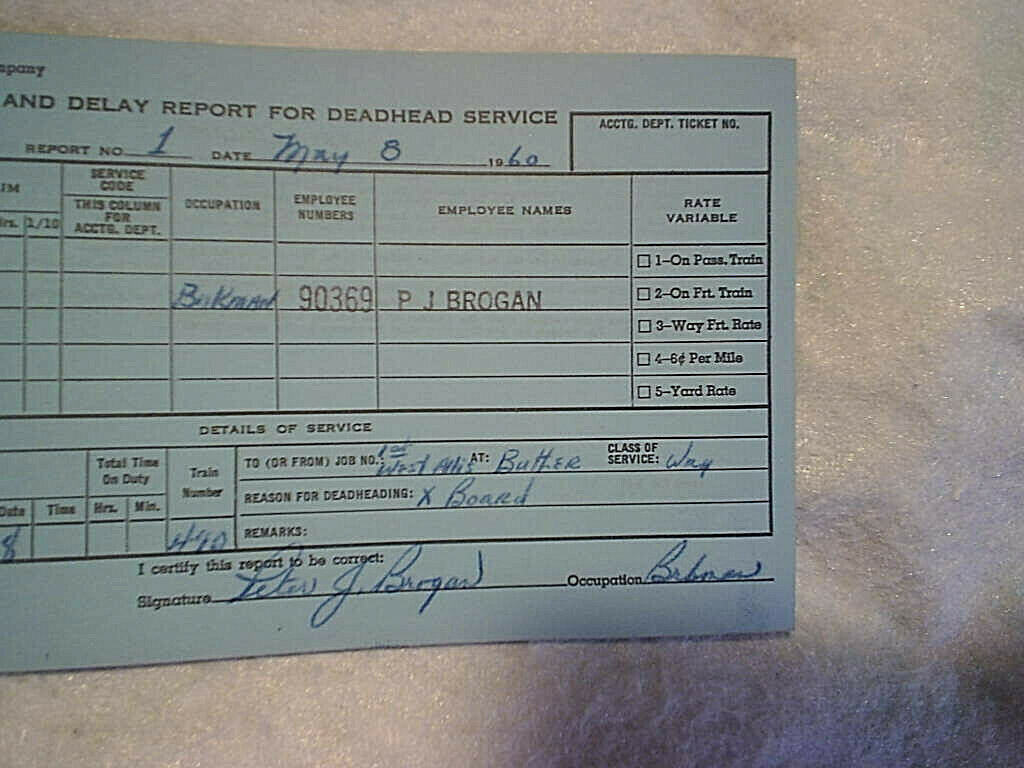 mpany
AND DELAY REPORT FOR DEADHEAD SERVICE
ACCTG. DEPT. TICKET NO.
REPORT NO. 1 DATE May 8 1960
IM
SERVICE CODE
THIS COLUMN FOR ACCTG. DEPT.
OCCUPATION
EMPLOYEE NUMBERS
EMPLOYEE NAMES
RATE VARIABLE
Hrs. 1/10
1-On Pass. Train
Brkman 90369 P J BROGAN 2-On Frt. Train
3-Way Frt. Rate
4-6¢ Per Mile
5-Yard Rate
DETAILS OF SERVICE
Total Time On Duty
Train Number
TO (OR FROM) JOB NO.: 1st West Allis AT: Butler CLASS OF SERVICE: Way
REASON FOR DEADHEADING: X Board
Date Time Hrs. Min.
8 490 REMARKS:
I certify this report to be correct:
Signature Peter J. Brogan Occupation Brkman